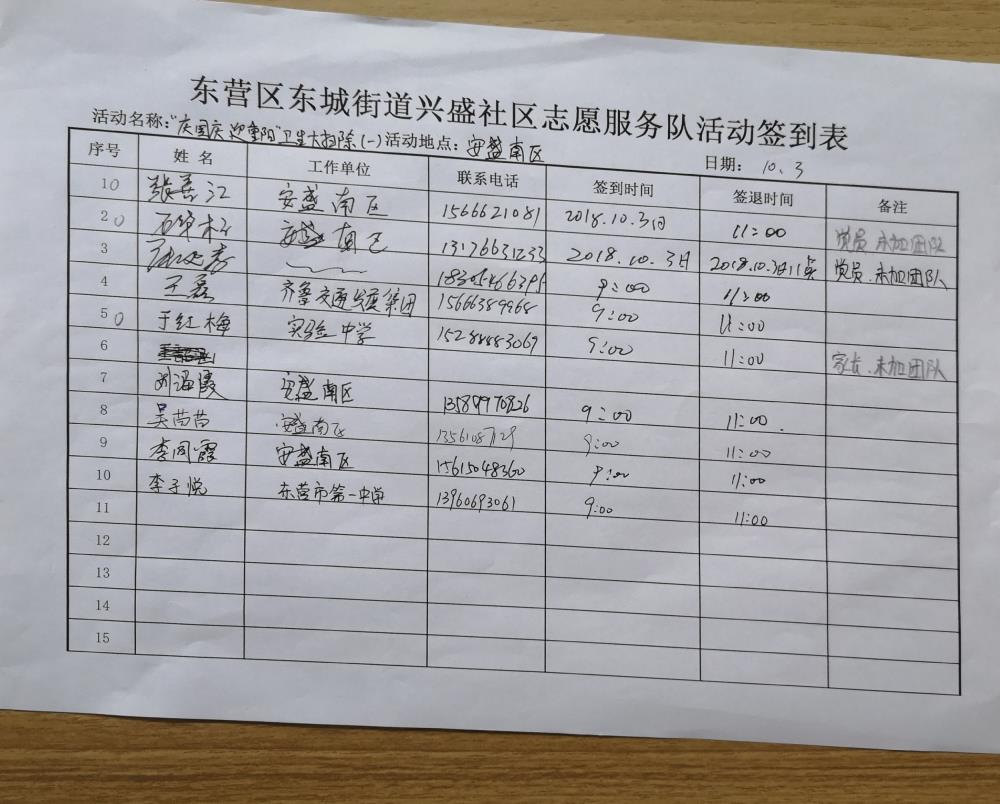 东营区东城街道兴盛社区志愿服务队活动签到表
活动名称：“庆国庆 迎重阳”卫生大扫除(一) 活动地点：安盛南区 日期： 10.3
序号 姓名 工作单位 联系电话 签到时间 签退时间 备注
1 0 张善江 安盛南区 1566621081 2018.10.3日 11:00 党员.未加团队
2 0 安盛南区 13176631233 2018.10.3日 2018.10.3日11点 党员.未加团队
3 9:00 11:00
4 王磊 齐鲁交通发展集团 15666389968 9:00 11:00
5 0 于红梅 实验中学 15288883069 9:00 11:00 家长.未加团队
6
7 刘海霞 安盛南区 13589970826 9:00 11:00.
8 吴苗苗 安盛南区 9:00 11:00
9 李同霞 安盛南区 15615048360 9:00 11:00
10 李子悦 东营市第一中学 13960693061 9:00 11:00
11
12
13
14
15